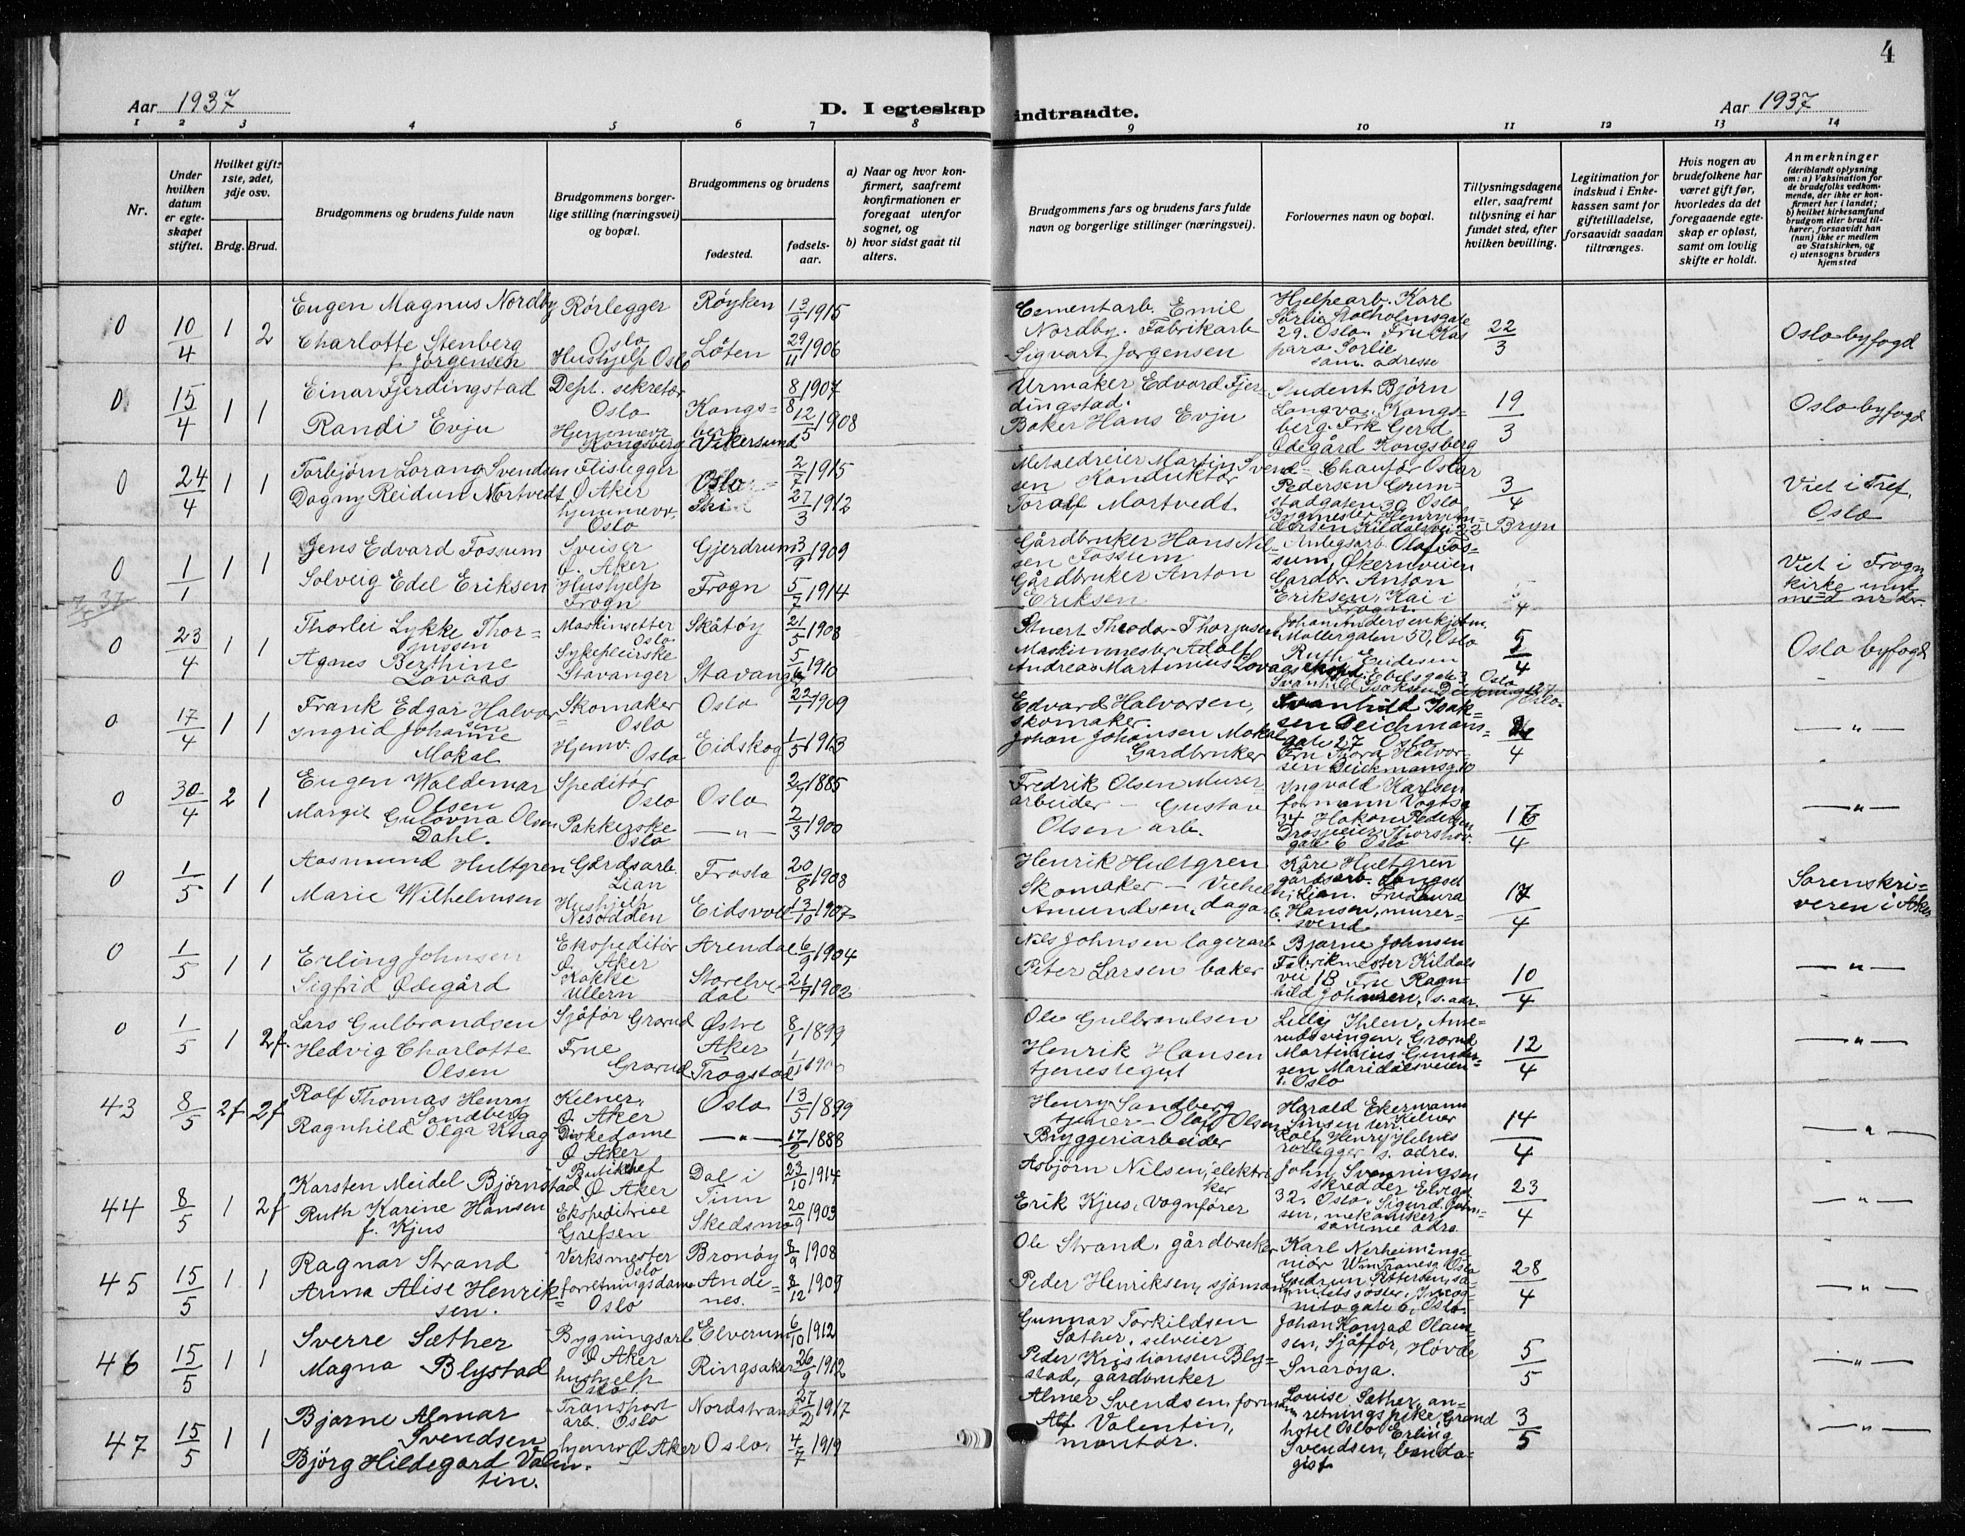 4
Aar 1937
D. I egteskap indtraadte.
Aar 1937
1 2 3 4 5 6 7 8 9 10 11 12 13 14
Nr.
Under hvilken datum er egteskapet stiftet.
Hvilket gift: 1ste, 2det, 3dje osv.
Brdg. Brud.
Brudgommens og brudens fulde navn
Brudgommens borgerlige stilling (næringsvei) og bopæl.
Brudgommens og brudens
fødested.
fødselsaar.
a) Naar og hvor konfirmert, saafremt konfirmationen er foregaat utenfor sognet, og
b) hvor sidst gaat til alters.
Brudgommens fars og brudens fars fulde navn og borgerlige stillinger (næringsvei).
Forlovernes navn og bopæl.
Tillysningsdagene eller, saafremt tillysning ei har fundet sted, efter hvilken bevilling.
Legitimation for indskud i Enkekassen samt for giftetilladelse, forsaavidt saadan tiltrænges.
Hvis nogen av brudefolkene har været gift før, hvorledes da det foregaaende egteskap er opløst, samt om lovlig skifte er holdt.
Anmerkninger (deriblandt oplysning om: a) Vaksination for de brudefolks vedkommende, der ikke er konfirmert her i landet; b) hvilket kirkesamfund brudgom eller brud tilhører, forsaavidt han (hun) ikke er medlem av Statskirken, og c) utensogns bruders hjemsted
0 10/4 1 2 Eugen Magnus Nordby Rørlegger Oslo Røyken 13/9 1915 Cementarb. Emil Nordby. Fabrikarb Hjelpearb. Karl Sørlie 29. Oslo. Fru 22/3 Oslo byfogd
Charlotte Stenberg f. Jørgensen Hushjelp Oslo Løten 29/11 1906 Sigvart Jørgensen Sørlie sam. adresse
0 15/4 1 1 Einar Fjerdingstad Dept. sekretær Oslo Kongsberg 8/8 1907 Urmaker Edvard Fjerdingstad. Student Bjørn Langvar, Kongsberg. Frk Gerd 19/3 Oslo byfogd
Randi Evju Hjemmevr Kongsberg Vikersund 12/5 1908 Baker Hans Evju Ødegård Kongsberg
0 24/4 1 1 Torbjørn Lorang Svendsen Flislegger Ø. Aker Oslo 2/7 1915 Metaldreier Martin Svendsen Chauffør Oskar Pedersen Grimstadgaten 30 Oslo 3/4 Bryn Viet i Tref. Oslo
Dagny Reidun Mortvedt hjemmevr. Oslo Ski 27/3 1912 Konduktør Toralf Mortvedt Bygmester Henry
0 1/1 1 1 Jens Edvard Fossum Sveiser Ø. Aker Gjerdrum 3/9 1909 Gårdbruker Hans Nilsen Fossum Anlegsarb Olaf Fossum, Økernveien Viet i Frogn kirke
7/5 37
Solveig Edel Eriksen Hushjelp Frogn Frogn 5/7 1914 Gårdbruker Anton Eriksen Gårdbr. Anton Eriksen, Kai i Frogn.
0 23/4 1 1 Thorlei Lykke Thorjussen Oslo Skåtøy 21/5 1908 Theodor Thorjussen Maskinmester Johan Andersen Møllergaten 50, Oslo 5/4 Oslo byfogd
Agnes Berthine Lovaas Sykepleirske Stavanger Stavanger 5/6 1910 Andreas Martinius Lovaas Ruth
0 17/4 1 1 Frank Edgar Halvorsen Skomaker Oslo Oslo 22/1 1909 Edvard Halvorsen, skomaker. Svanhild Isaksen Deichmansgate 27 Oslo — " —
Ingrid Johanne Mokal Hjemv. Oslo Eidskog 1/5 1913 Johan Johansen Mokal Gårdbruker Fru Thora Halvorsen Deickmansg. 10
0 30/4 2 1 Eugen Waldemar Olsen Speditør Oslo Oslo 1885 Fredrik Olsen Murerarbeider — Yngvald Karlsen formann Vogtsg 34 Hakon Pedersen — " —
Margit Gulovna Olsen Dahl. Pakkerske Oslo — " — 2/3 1900 Gustav Olsen arb. Drosjeeier, Thorshovgate 6 Oslo
0 1/5 1 1 Aasmund Hultgren Gårdsarb. Lian Frosta 20/8 1908 Henrik Hultgren Skomaker — Kåre Hultgren gårdsarb. 17/4 Sorenskriveren i Aker
Marie Wilhelmsen Hushjelp Nesodden Eidsvoll 13/10 1907 Vilhelm Amundsen, dagarb. Lian. Fru Laura Hansen, murersvend
0 1/5 1 1 Erling Johnsen Ekspeditør Ø. Aker Arendal 6/9 1904 Nils Johnsen lagerarb Bjarne Johnsen Fabrikmester Kildalsvei 1B 10/4 — " —
Sigfrid Ødegård Kokke Ullern Storelvedal 21/9 1902 Peter Larsen baker Fru Ragnhild Johansen, s. adr.
0 1/5 1 2f. Lars Gulbrandsen Sjåfør Grorud Østre Aker 8/1 1899 Ole Gulbrandsen Lilly Ihlen, Ammerudsvingen, Grorud 12/4 — " —
Hedvig Charlotte Olsen Frue Grorud Trøgstad 1/1 1900 Henrik Hansen tjenestegut Martinius Gundersen Maridalsveien Oslo
43 8/5 2f 2f Rolf Thomas Henry Sandberg Kelner, Ø. Aker Oslo 13/5 1899 Henry Sandberg tjener — Harald Ekermann Sinsen terr. Kelner 14/4 — " —
Ragnhild Olga Knag Diskedame Ø Aker — " — 17/2 1888 Olaf Olsen Bryggeriarbeider Rolf Henry Hilnes rørlegger s. adres.
44 8/5 1 2f Karsten Meidel Bjørnstad Butikchef Ø. Aker Dal i Tinn 23/10 1914 Asbjørn Nilsen, elektriker John Svenningsen skredder Elvegt. 32. Oslo. 23/4 — " —
Ruth Karine Hansen f. Kjus Ekspeditrice Grefsen Skedsmo 20/9 1903 Erik Kjus, Vognfører Sigurd Johnsen, mekaniker, samme adr.
45 15/5 1 1 Ragnar Strand Verksmester Oslo Brønøy 8/9 1908 Ole Strand, gårdbruker Karl Nerheim ingeniør 28/4 — " —
Anna Alise Henriksen. forretningsdame Oslo Andenes. 8/12 1909 Peder Henriksen, sjømann Gudrun Pettersen, sanitetssøster, Incognitogate 6, Oslo.
46 15/5 1 1 Sverre Sæther Bygningsarb Ø Aker Elverum 6/10 1912 Gunnar Torkildsen Sæther, selveier Johan Konrad Olaussen, Sjåffør, Høvde Snarøya. 5/5 — " —
Magna Blystad hushjelp Oslo Ringsaker 26/9 1912 Peder Kristiansen Blystad, gårdbruker Louise Sæther, anretningspike, Grand hotel Oslo
47 15/5 1 1 Bjarne Almar Svendsen Transportarb. Oslo Nordstrand 27/2 1917 Almer Svendsen, formann Erling Svendsen, bandagist 3/5 — " —
Bjørg Hildegard Valentin. hjemv. Ø Aker Oslo. 4/7 1919 Alf Valentin, montør.